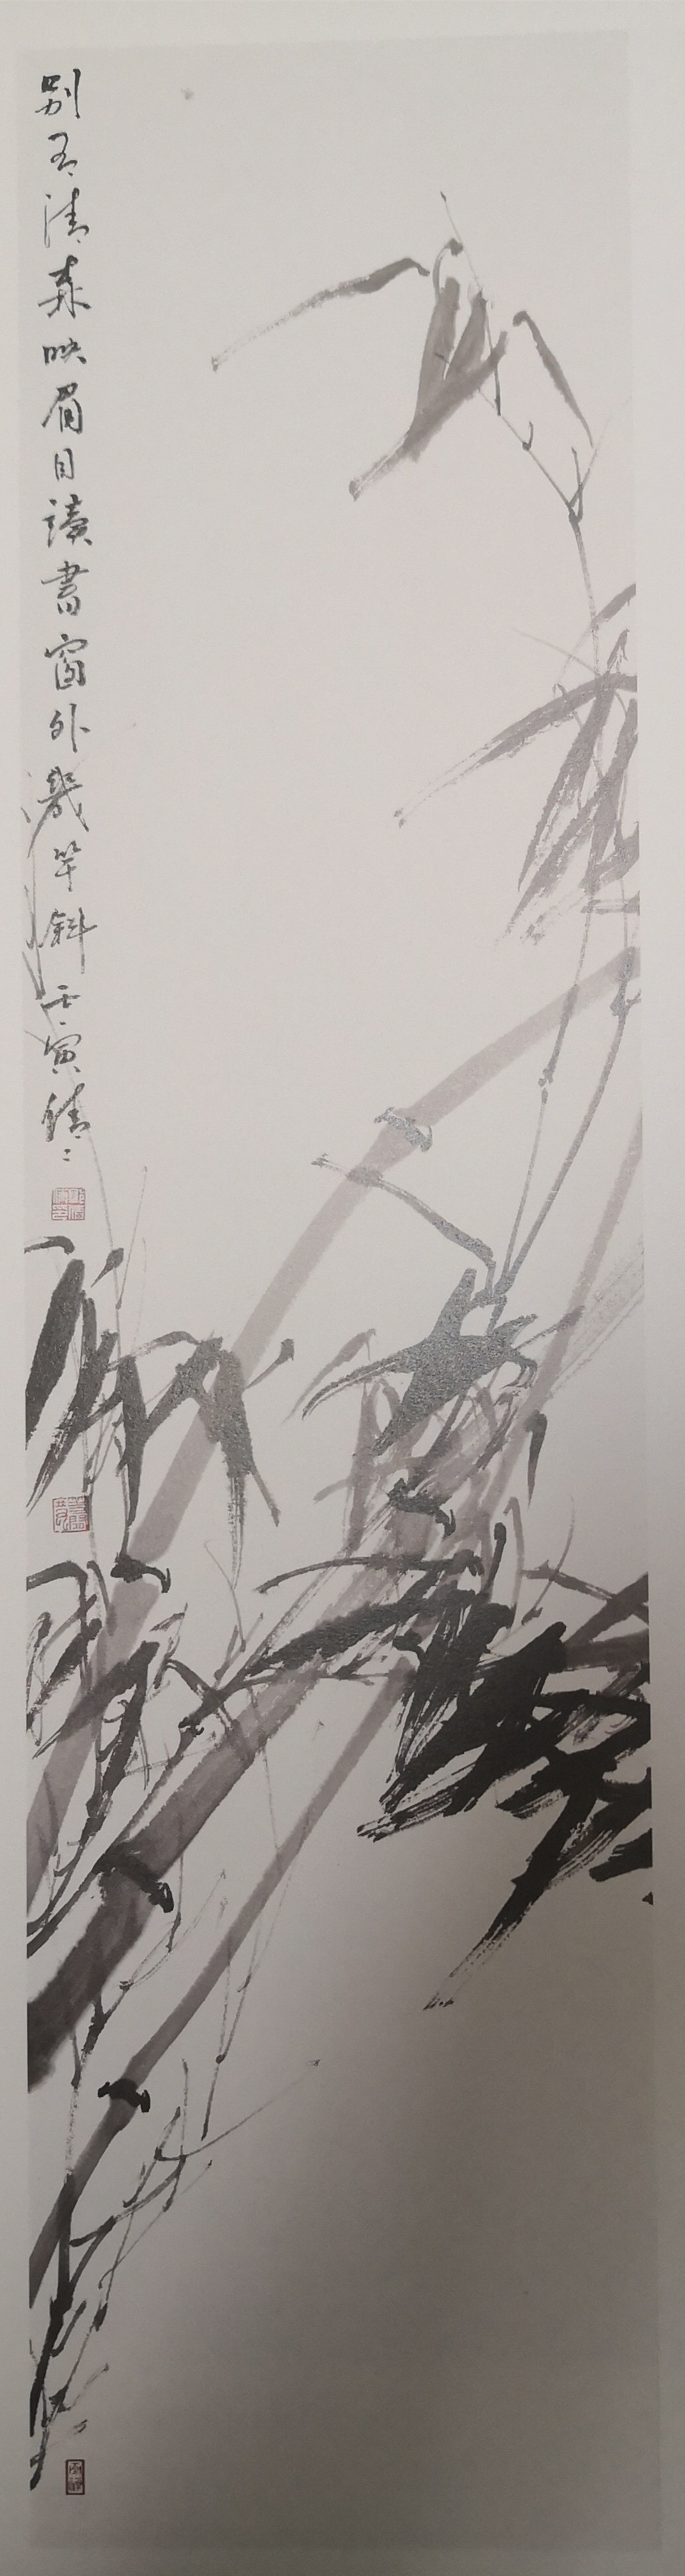 别有清森映眉目讀書窗外幾竿斜壬寅倩〻